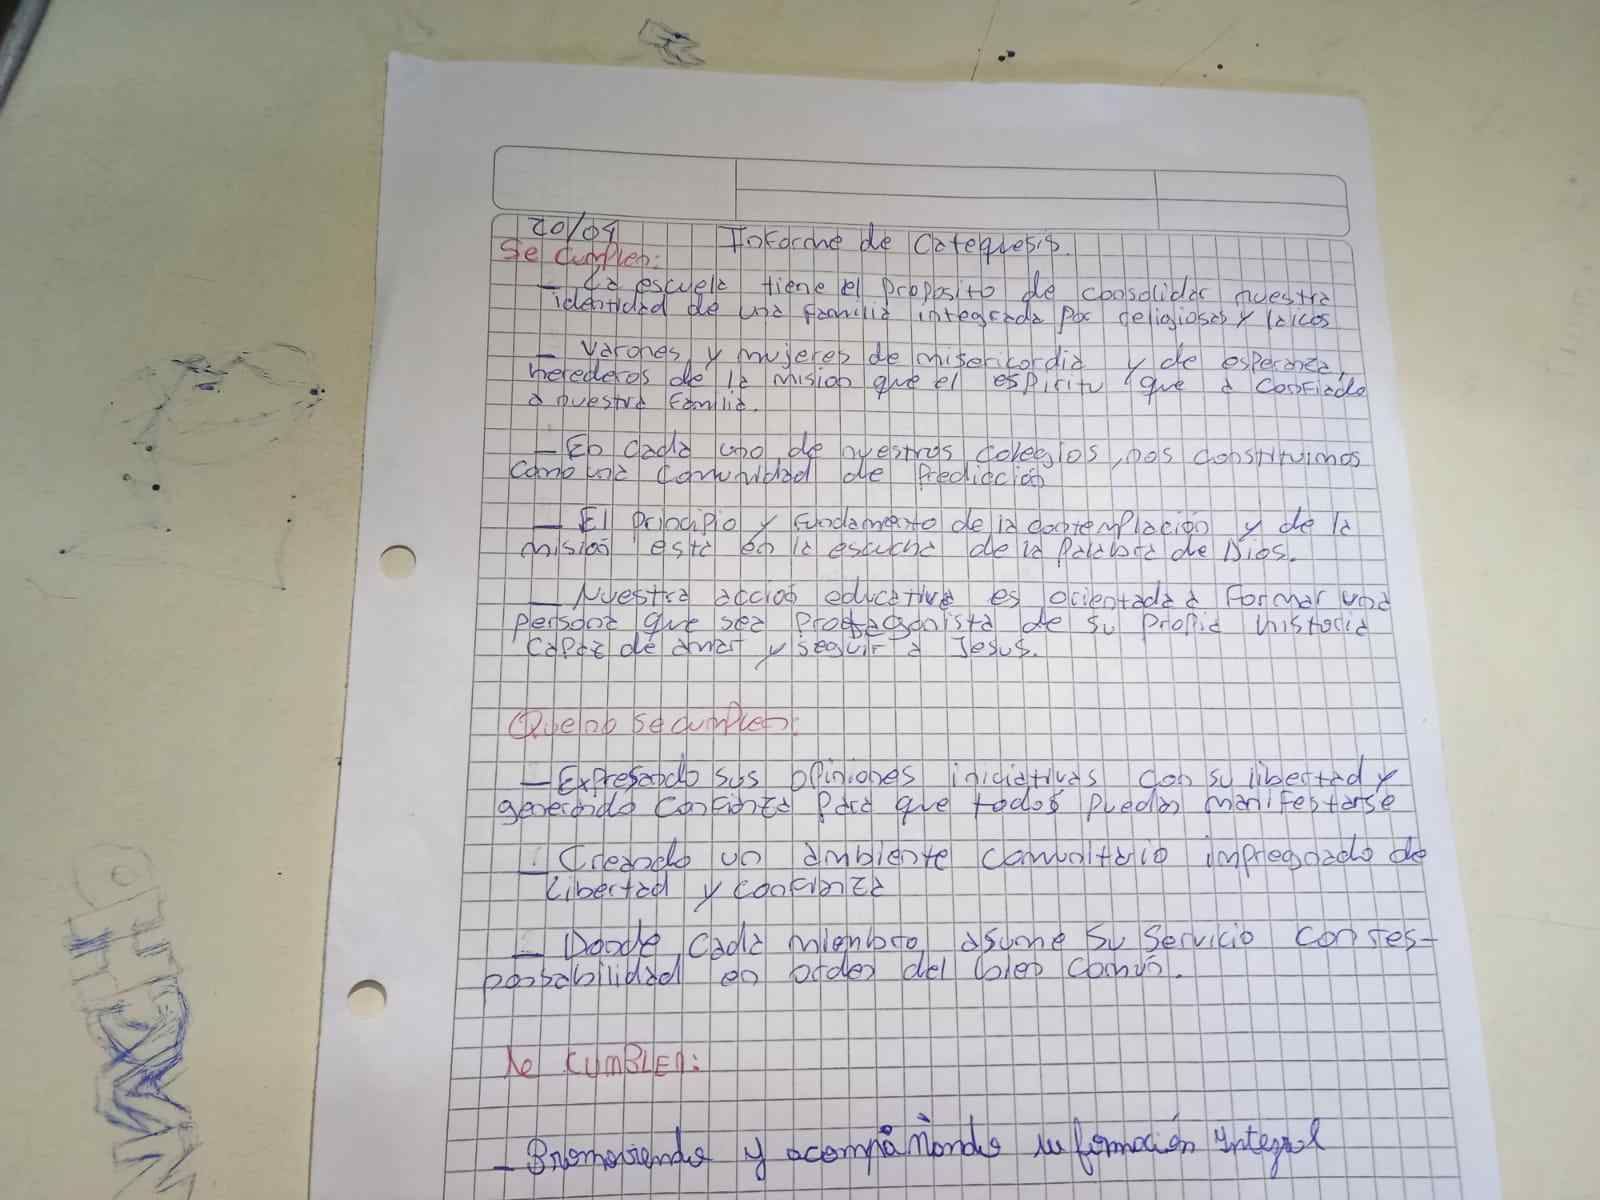 20/04 Informe de Catequesis.
Se cumplen:
- La escuela tiene el proposito de consolidar nuestra
identidad de una familia integrada por religiosas y laicos
- Varones y mujeres de misericordia y de esperanza,
herederos de la mision que el espiritu que a confiado
a nuestra familia.
- En cada uno de nuestros colegios, nos constituimos
como una comunidad de Predicción
- El principio y fundamento de la contemplación y de la
misión esta en la escucha de la Palabra de Dios.
- Nuestra acción educativa es orientada a formar una
persona que sea protagonista de su propia historia
capaz de amar y seguir a Jesus.
Que no se cumplen:
- Expresando sus opiniones iniciativas con su libertad y
generando confianza para que todos puedan manifestarse
- Creando un ambiente comunitario impregnado de
libertad y confianza
- Donde cada miembro asume su servicio con res-
ponsabilidad en orden del bien común.
Se CUMBLEN:
- Promoviendo y acompañando su formación integral